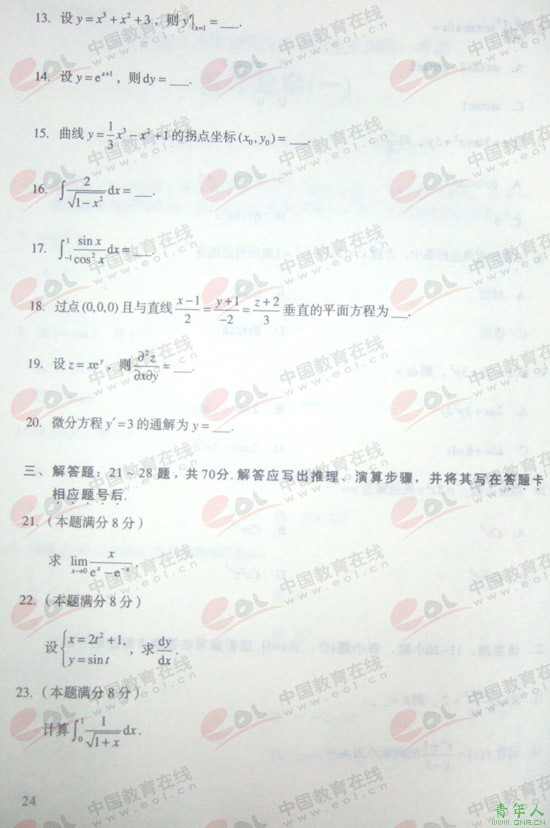 13. 设 y = x³ + x² + 3，则 y'|ₓ₌₁ = ___.
14. 设 y = eˣ⁺¹，则 dy = ___.
15. 曲线 y = 1/3 x³ − x² + 1 的拐点坐标 (x₀, y₀) = ___.
16. ∫ 2/√(1−x²) dx = ___.
17. ∫₋₁¹ sin x/cos² x dx = ___.
18. 过点 (0,0,0) 且与直线 (x−1)/2 = (y+1)/−2 = (z+2)/3 垂直的平面方程为 ___.
19. 设 z = xeʸ，则 ∂²z/∂x∂y = ___.
20. 微分方程 y' = 3 的通解为 y = ___.
三、解答题：21～28题，共70分.解答应写出推理、演算步骤，并将其写在答题卡
相应题号后.
21.（本题满分8分）
求 lim x→0 x/(eˣ − e⁻ˣ).
22.（本题满分8分）
设 { x = 2t² + 1, y = sin t ，求 dy/dx.
23.（本题满分8分）
计算 ∫₀¹ 1/√(1+x) dx.
24
EOL 中国教育在线
www.eol.cn
青年人
QNR.CN